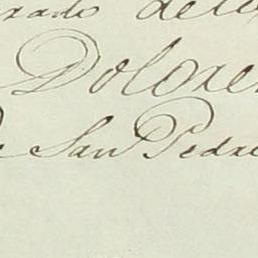 rado de
Dolore
San Pedro